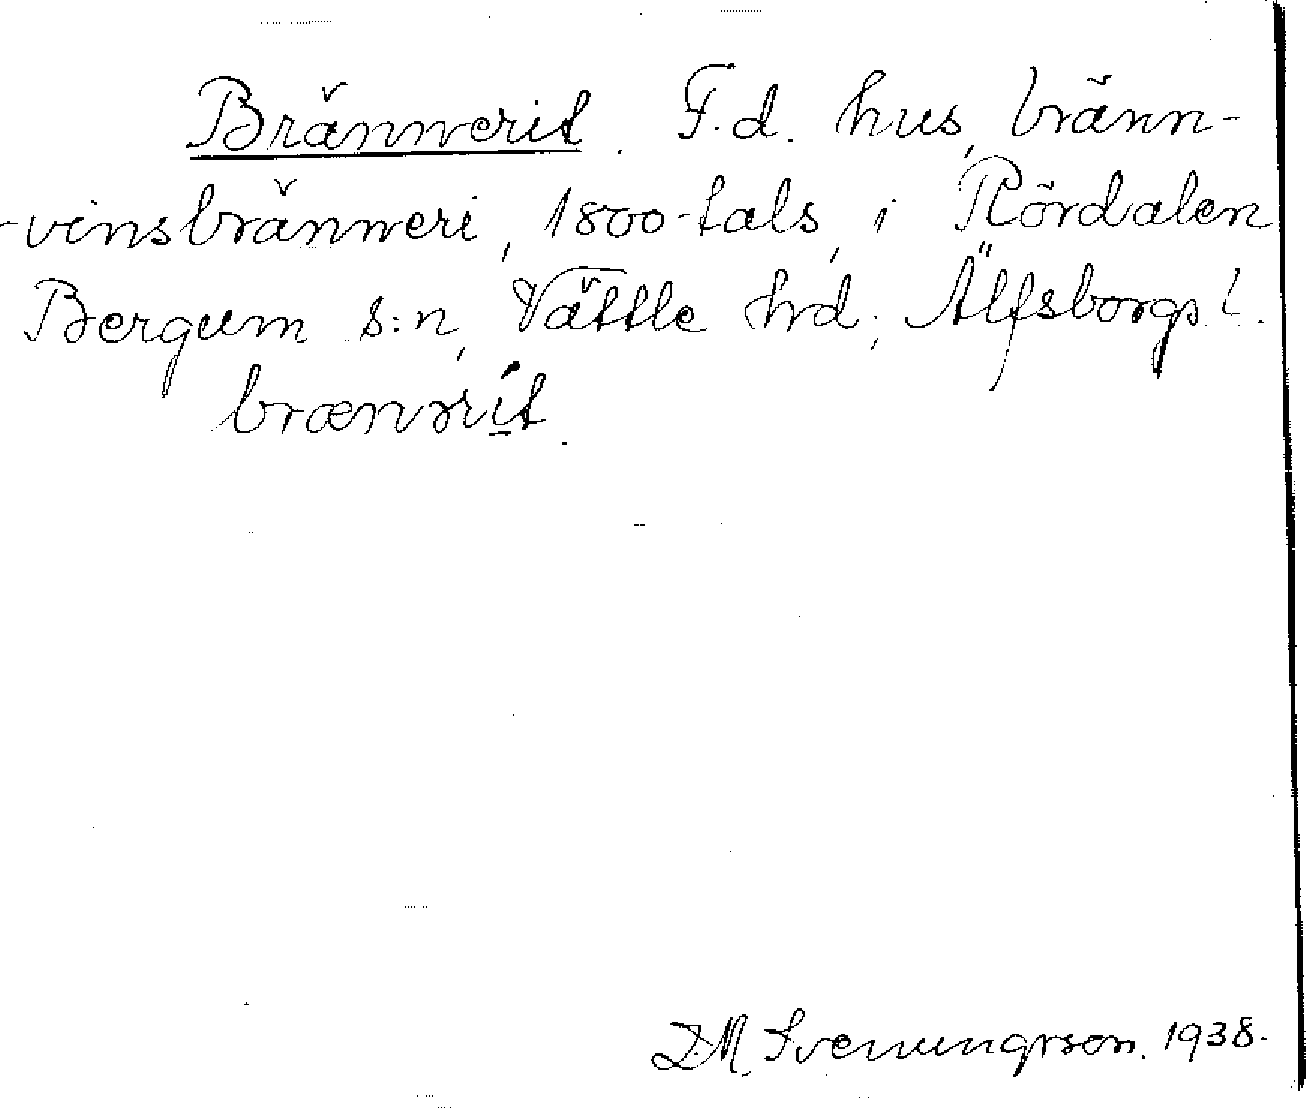 Bränneriet. F.d. hus, bränn-
-vinsbränneri, 1800-tals, i Rördalen
Bergum s:n, Vättle hd; Älfsborgs l.
brænərit.
D.M. Svenungsson. 1938.